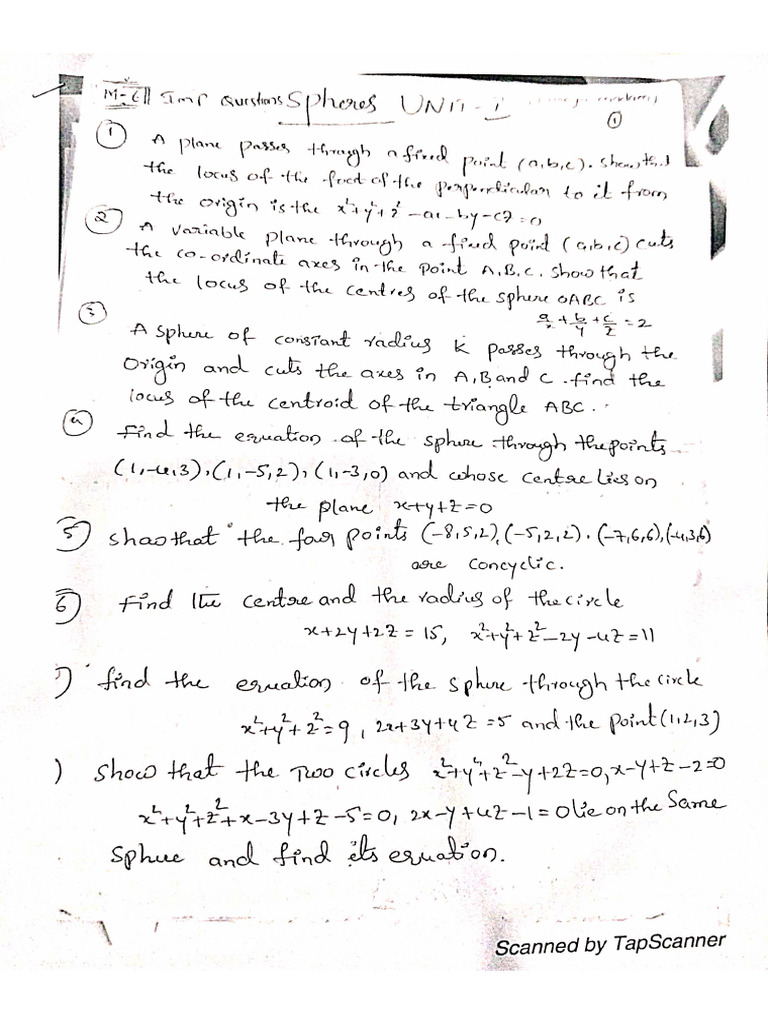 M-6 Imp Questions Spheres UNIT-I
①
① A plane passes through a fixed point (a,b,c). show that
the locus of the foot of the perpendicular to it from
the origin is the x²+y²+z²-ax-by-cz=0
② A variable plane through a fixed point (a,b,c) cuts
the co-ordinate axes in the point A,B,C. Show that
the locus of the centres of the sphere OABC is
a/x + b/y + c/z = 2
③
A sphere of constant radius k passes through the
origin and cuts the axes in A,B and C. find the
locus of the centroid of the triangle ABC.
④ Find the equation of the sphere through the points
(1,-4,3), (1,-5,2), (1,-3,0) and whose centre lies on
the plane x+y+z=0
5) Show that the four points (-8,5,2), (-5,2,2), (-7,6,6), (-4,3,6)
are concyclic.
6) Find the centre and the radius of the circle
x+2y+2z=15, x²+y²+z²-2y-4z=11
7) find the equation of the sphere through the circle
x²+y²+z²=9, 2x+3y+4z=5 and the point (1,2,3)
) Show that the Two circles x²+y²+z²-y+2z=0, x-y+z-2=0
x²+y²+z²+x-3y+z-5=0, 2x-y+4z-1=0 lie on the Same
Sphere and find its equation.
Scanned by TapScanner